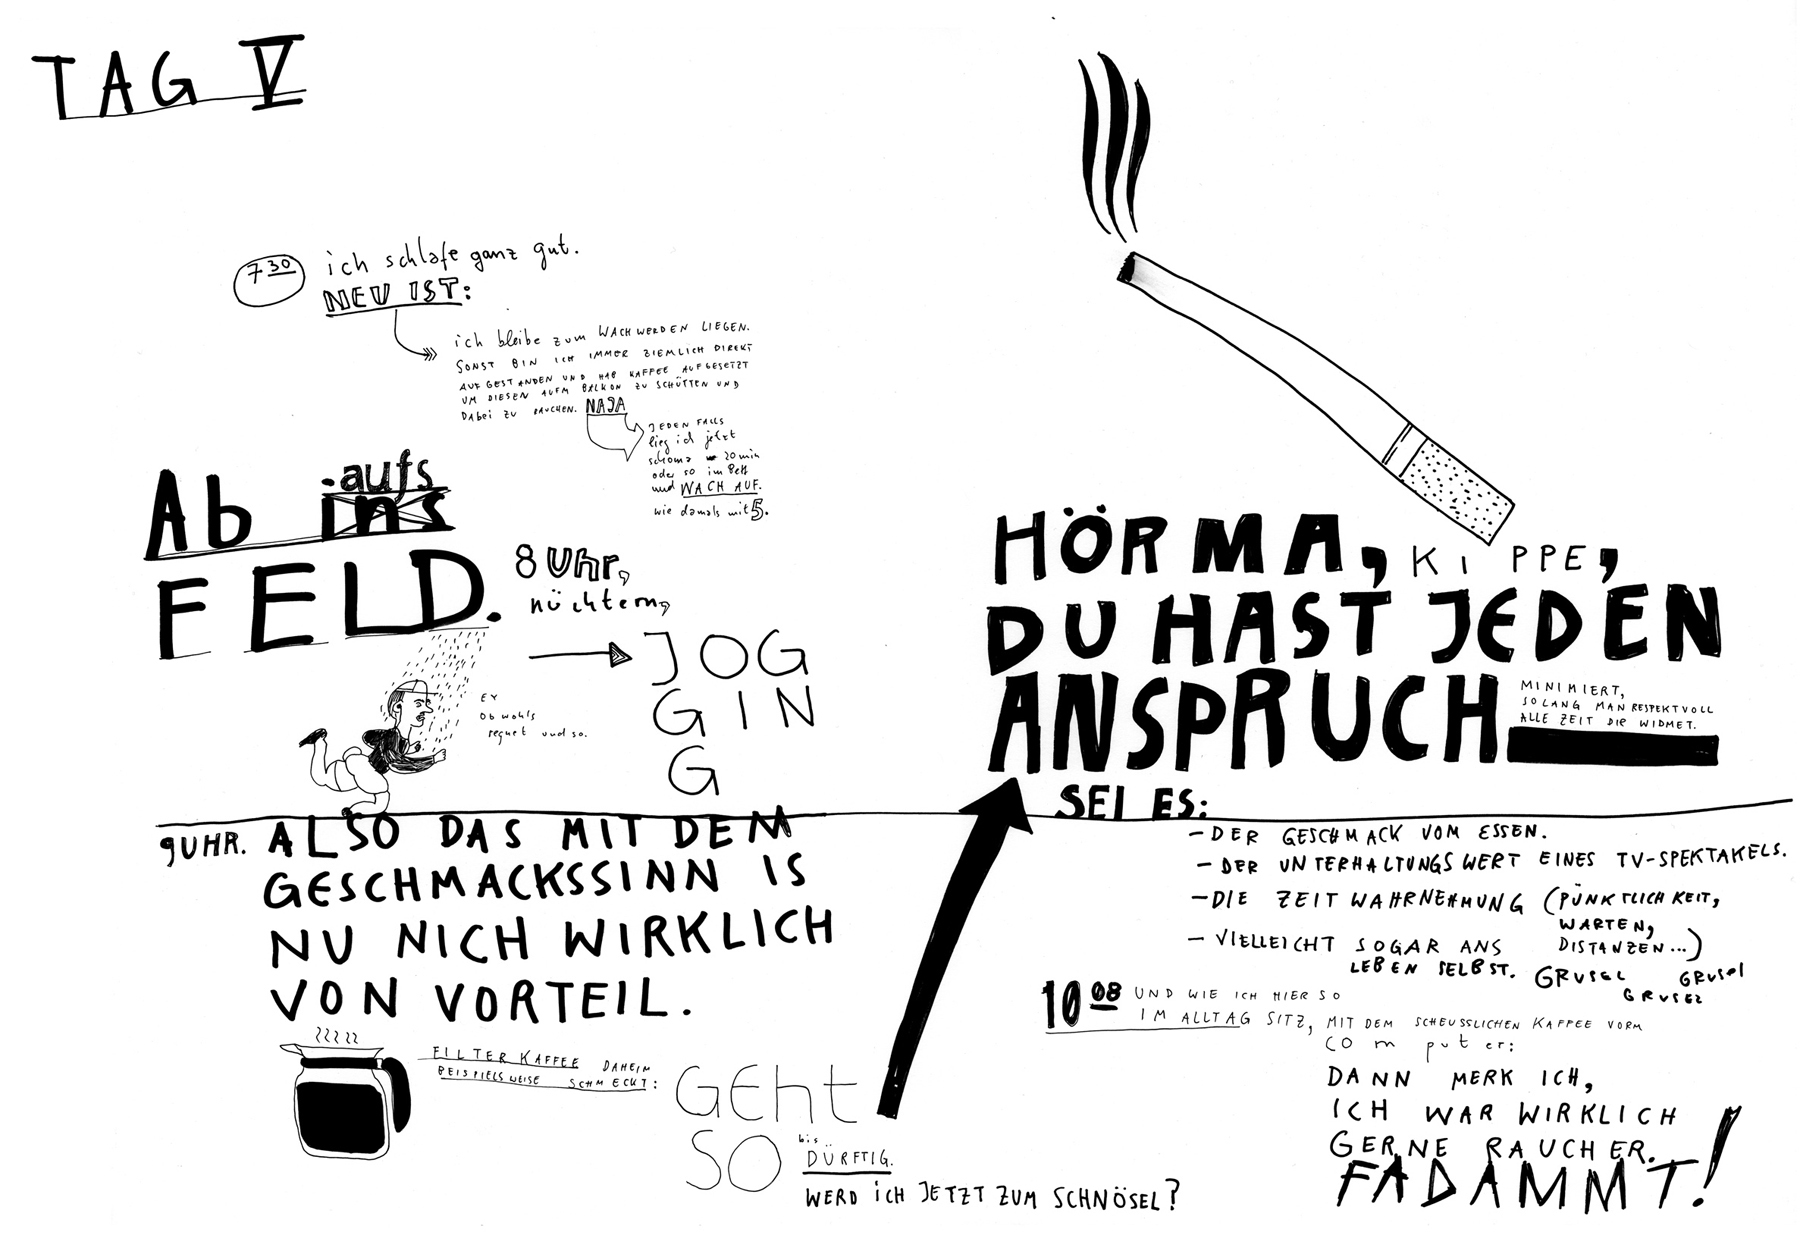 TAG V
7 30
ich schlafe ganz gut.
NEU IST:
ich bleibe zum WACHWERDEN LIEGEN.
SONST BIN ICH IMMER ZIEMLICH DIREKT
AUFGESTANDEN UND HAB KAFFEE AUFGESETZT
UM DIESEN AUFM BALKON ZU SCHÜTTEN UND
DABEI ZU RAUCHEN. NAJA
JEDEN FALLS
lieg ich jetzt
schoma 20 min
oder so im Bett
und WACH AUF.
wie damals mit 5.
Ab ins aufs
FELD.
8 Uhr,
nüchtern,
JOG
GIN
G
EY
Obwohls
regnet und so.
9 UHR. ALSO DAS MIT DEM
GESCHMACKSSINN IS
NU NICH WIRKLICH
VON VORTEIL.
FILTER KAFFEE DAHEIM
BEISPIELSWEISE SCHMECKT:
GEht
SO
bis
DÜRFTIG.
WERD iCH JETZT ZUM SCHNÖSEL?
HÖR MA, KIPPE,
DU HAST JEDEN
ANSPRUCH
MINIMIERT,
SOLANG MAN RESPEKTVOLL
ALLE ZEIT DIR WIDMET.
SEI ES:
- DER GESCHMACK VOM ESSEN.
- DER UNTERHALTUNGSWERT EINES TV-SPEKTAKELS.
- DIE ZEITWAHRNEHMUNG (PÜNKTLICHKEIT,
WARTEN,
DISTANZEN...)
- VIELLEICHT SOGAR ANS
LEBEN SELBST. GRUSEL GRUSEL
GRUSEL
10 08 UND WIE ICH HIER SO
IM ALLTAG SITZ, MIT DEM SCHEUSSLICHEN KAFFEE VORM
COmputer:
DANN MERK ICH,
ICH WAR WIRKLICH
GERNE RAUCHER.
FADAMMT!